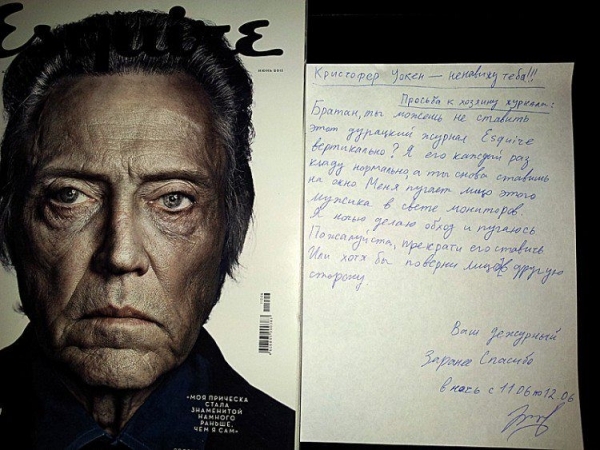 Esquire
ИЮНЬ 2011
«МОЯ ПРИЧЕСКА
СТАЛА
ЗНАМЕНИТОЙ
НАМНОГО
РАНЬШЕ,
ЧЕМ Я САМ»
Кристофер Уокен — ненавижу тебя!!!
Просьба к хозяину журнала:
Братан, ты можешь не ставить
этот дурацкий журнал Esquire
вертикально? Я его каждый раз
кладу нормально, а ты снова ставишь
на окно. Меня пугает лицо этого
мужика в свете мониторов.
Я ночью делаю обход и пугаюсь
Пожалуйста, прекрати его ставить
Или хотя бы поверни лицом в другую
сторону.
Ваш дежурный
Заранее Спасибо
в ночь с 11.06 по 12.06